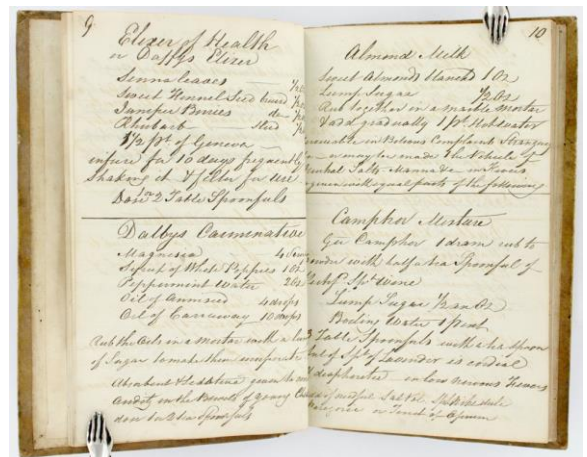 9
Elixer of Health
or Daffys Elixer
Senna leaves
Sweet Fennel Seed bruised
Juniper Berries do
Rhubarb Sliced
1 1/2 pt of Geneva
infuse for 10 days frequently
Shaking it & filter for use
Dose 2 Table Spoonfuls
Dalbys Carminative
Magnesia
Syrup of White Poppies 1 Oz
Peppermint Water 2 Oz
Oil of Anniseed 4 drops
Oil of Carraway 10 drops
Rub the Oils in a mortar with a
of Sugar to make them incorporate
given to
acidity in the Bowels of young
dose Tea Spoonfuls
10
Almond Milk
Sweet Almonds blanced 1 Oz
Lump Sugar 1/2 Oz
Rub together in a marble mortar
& add gradually 1 pt Hot water
in Complaints
or may be made the Vehicle of
Neutral Salts Manna &c in Fevers
given with equal parts of the following
Camphor Mixture
Gum Camphor 1 dram rub to
powder with half a tea Spoonful of
Spt Wine
Lump Sugar 1/2 an Oz
Boiling Water 1 pint
3 Table Spoonfuls with a tea spoon
ful of Spt of Lavender is cordial
& diaphoretic in low nervous Fevers
or Tinct of Opium